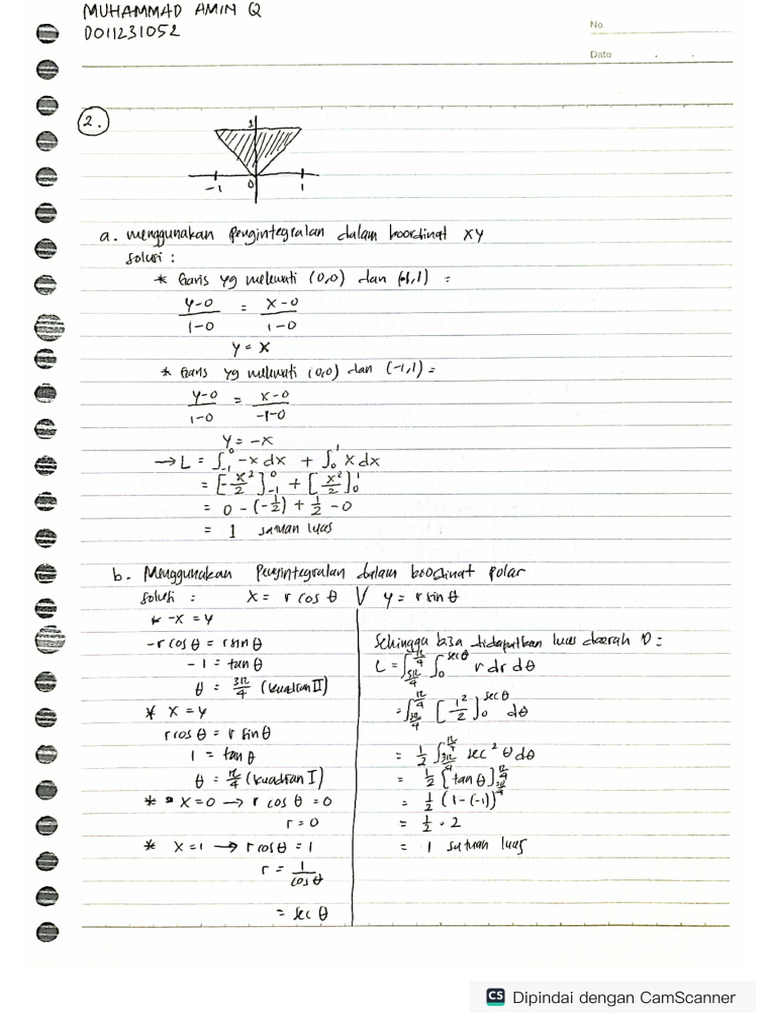 MUHAMMAD AMIN Q
D011231052
No.
Date
2.
1
-1 0 1
a. menggunakan pengintegralan dalam koordinat xy
solusi :
* Garis yg melewati (0,0) dan (1,1) =
y-0/1-0 = x-0/1-0
y = x
* Garis yg melewati (0,0) dan (-1,1) =
y-0/1-0 = x-0/-1-0
y = -x
→ L = ∫_{-1}^{0} -x dx + ∫_{0}^{1} x dx
= [-x²/2]_{-1}^{0} + [x²/2]_{0}^{1}
= 0 - (-1/2) + 1/2 - 0
= 1 satuan luas
b. Menggunakan Pengintegralan dalam koordinat polar
solusi : x = r cos θ V y = r sin θ
* -x = y
-r cos θ = r sin θ
-1 = tan θ
θ = 3π/4 (kuadran II)
* x = y
r cos θ = r sin θ
1 = tan θ
θ = π/4 (kuadran I)
* x = 0 → r cos θ = 0
r = 0
* x = 1 → r cos θ = 1
r = 1/cos θ
= sec θ
Sehingga bisa didapatkan luas daerah D :
L = ∫_{3π/4}^{π/4} ∫_{0}^{sec θ} r dr dθ
= ∫_{3π/4}^{π/4} [r²/2]_{0}^{sec θ} dθ
= 1/2 ∫_{3π/4}^{π/4} sec² θ dθ
= 1/2 [tan θ]_{3π/4}^{π/4}
= 1/2 (1-(-1))
= 1/2 · 2
= 1 satuan luas
CS Dipindai dengan CamScanner